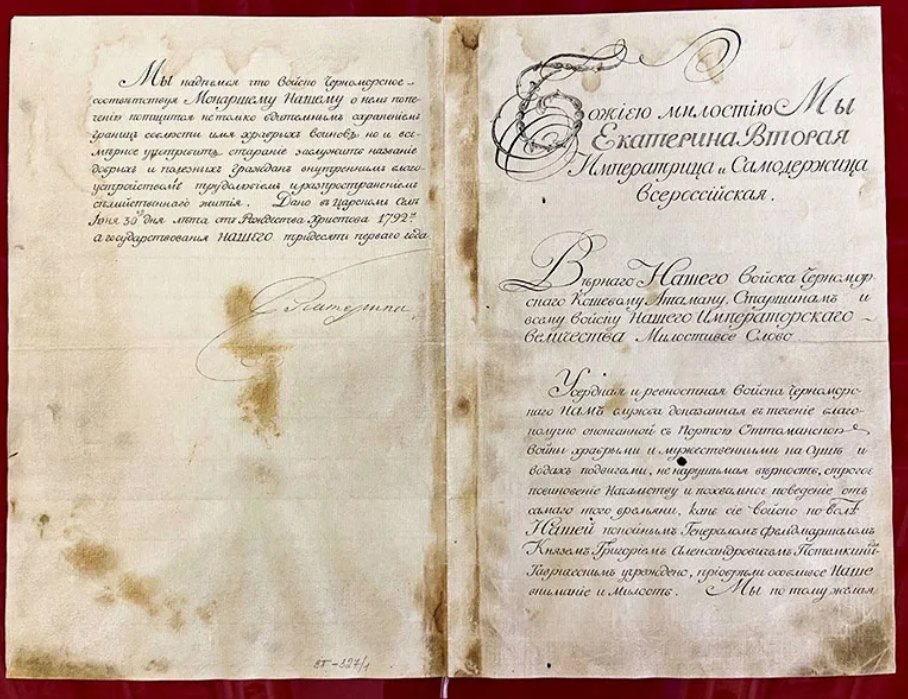 Мы надѣемся что Войско Черноморское
соответствуя Монаршему Нашему о немъ попе-
ченію потщится не только бдительнымъ охраненіемъ
границъ соблюсти имя храбрыхъ воиновъ но и все-
мѣрное употребить стараніе заслужить названіе
добрыхъ и полезныхъ гражданъ внутреннимъ благо-
устройствомъ трудолюбіемъ и распространеніемъ
семейственнаго житія. Дано въ Царскомъ Селѣ
Іюня 30го дня лѣта отъ Рождества Христова 1792го
а государствованія НАШЕГО тридесять перваго года.
Екатерина
ВГ-327/1
Божіею милостію Мы
Екатерина Вторая
Императрица и Самодержица
Всероссійская.
Вѣрнаго Нашего Войска Черномор-
скаго Кошевому Атаману, Старшинамъ и
всему Войску Нашего Императорскаго
Величества Милостивое Слово
Усердная и ревностная Войска Черномор-
скаго НАМЪ служба доказанная въ теченіе благо-
получно оконченной съ Портою Оттоманскою
Войны храбрыми и мужественными на Сушѣ и
водахъ подвигами, не нарушимая вѣрность, строгое
повиновеніе Начальству и похвальное поведеніе отъ
самаго того времяни, какъ сіе Войско по волѣ
Нашей покойнымъ Генераломъ Фелдмаршаломъ
Княземъ Григоріемъ Александровичемъ Потемкинымъ
Таврическимъ учреждено, пріобрѣли особливое Наше
вниманіе и Милость. Мы по тому желая